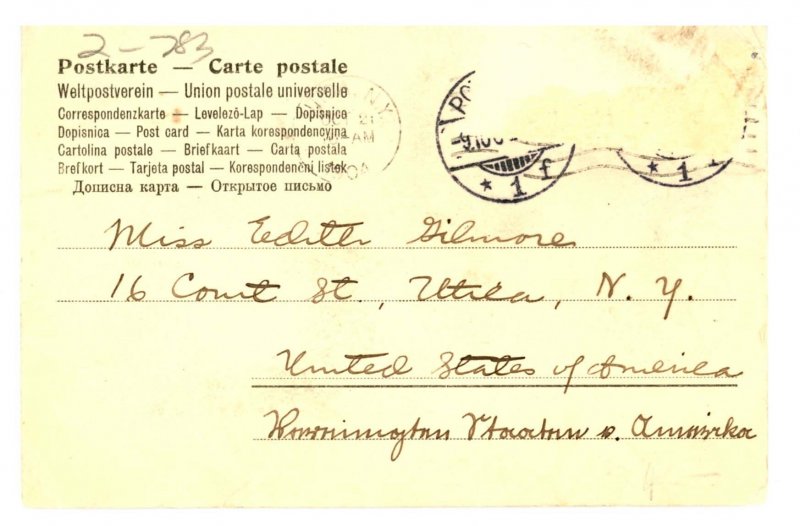 2-783
Postkarte — Carte postale
Weltpostverein — Union postale universelle
Correspondenzkarte — Levelező-Lap — Dopisnice
Dopisnica — Post card — Karta korespondencyjna
Cartolina postale — Briefkaart — Carta postala
Brefkort — Tarjeta postal — Korespondenčni listek
Дописна карта — Открытое письмо
N.Y.
AM
* 1 f
* 1
Miss Edith Gilmore
16 Court St., Utica, N. Y.
United States of America
Vereinigten Staaten v. Amerika